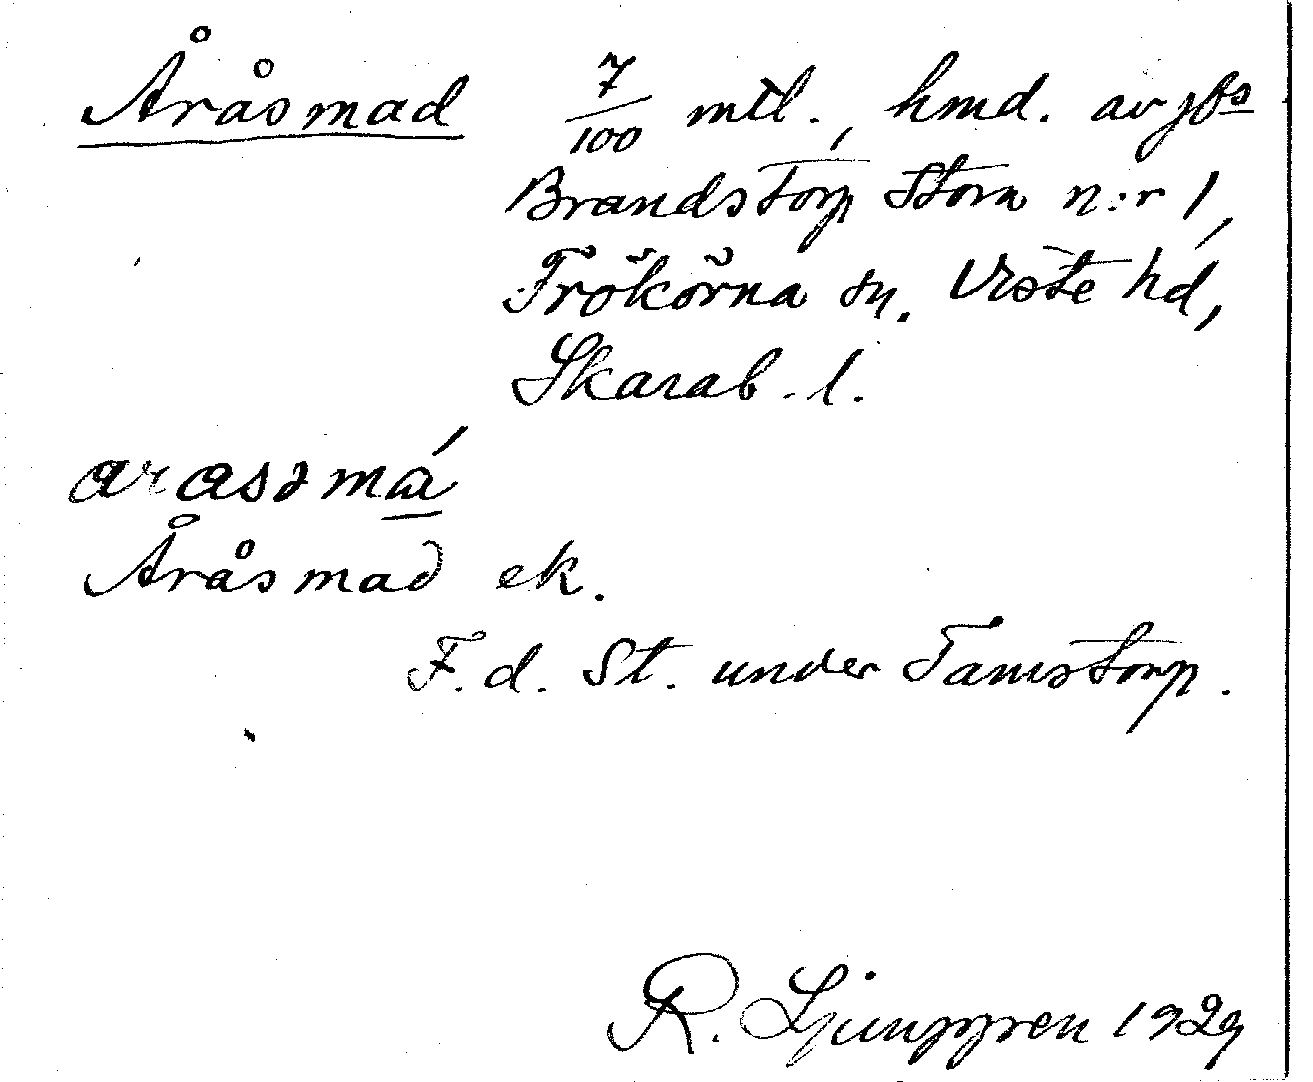 Åråsmad 7/100 mtl., hmd. av jbs
Brandstorp Stora n:r 1,
Frökörna sn. Viste hd,
Skarab. l.
arasəmá
Åråsmad ek.
F. d. St. under Tamstorp.
R. Ljunggren 1929